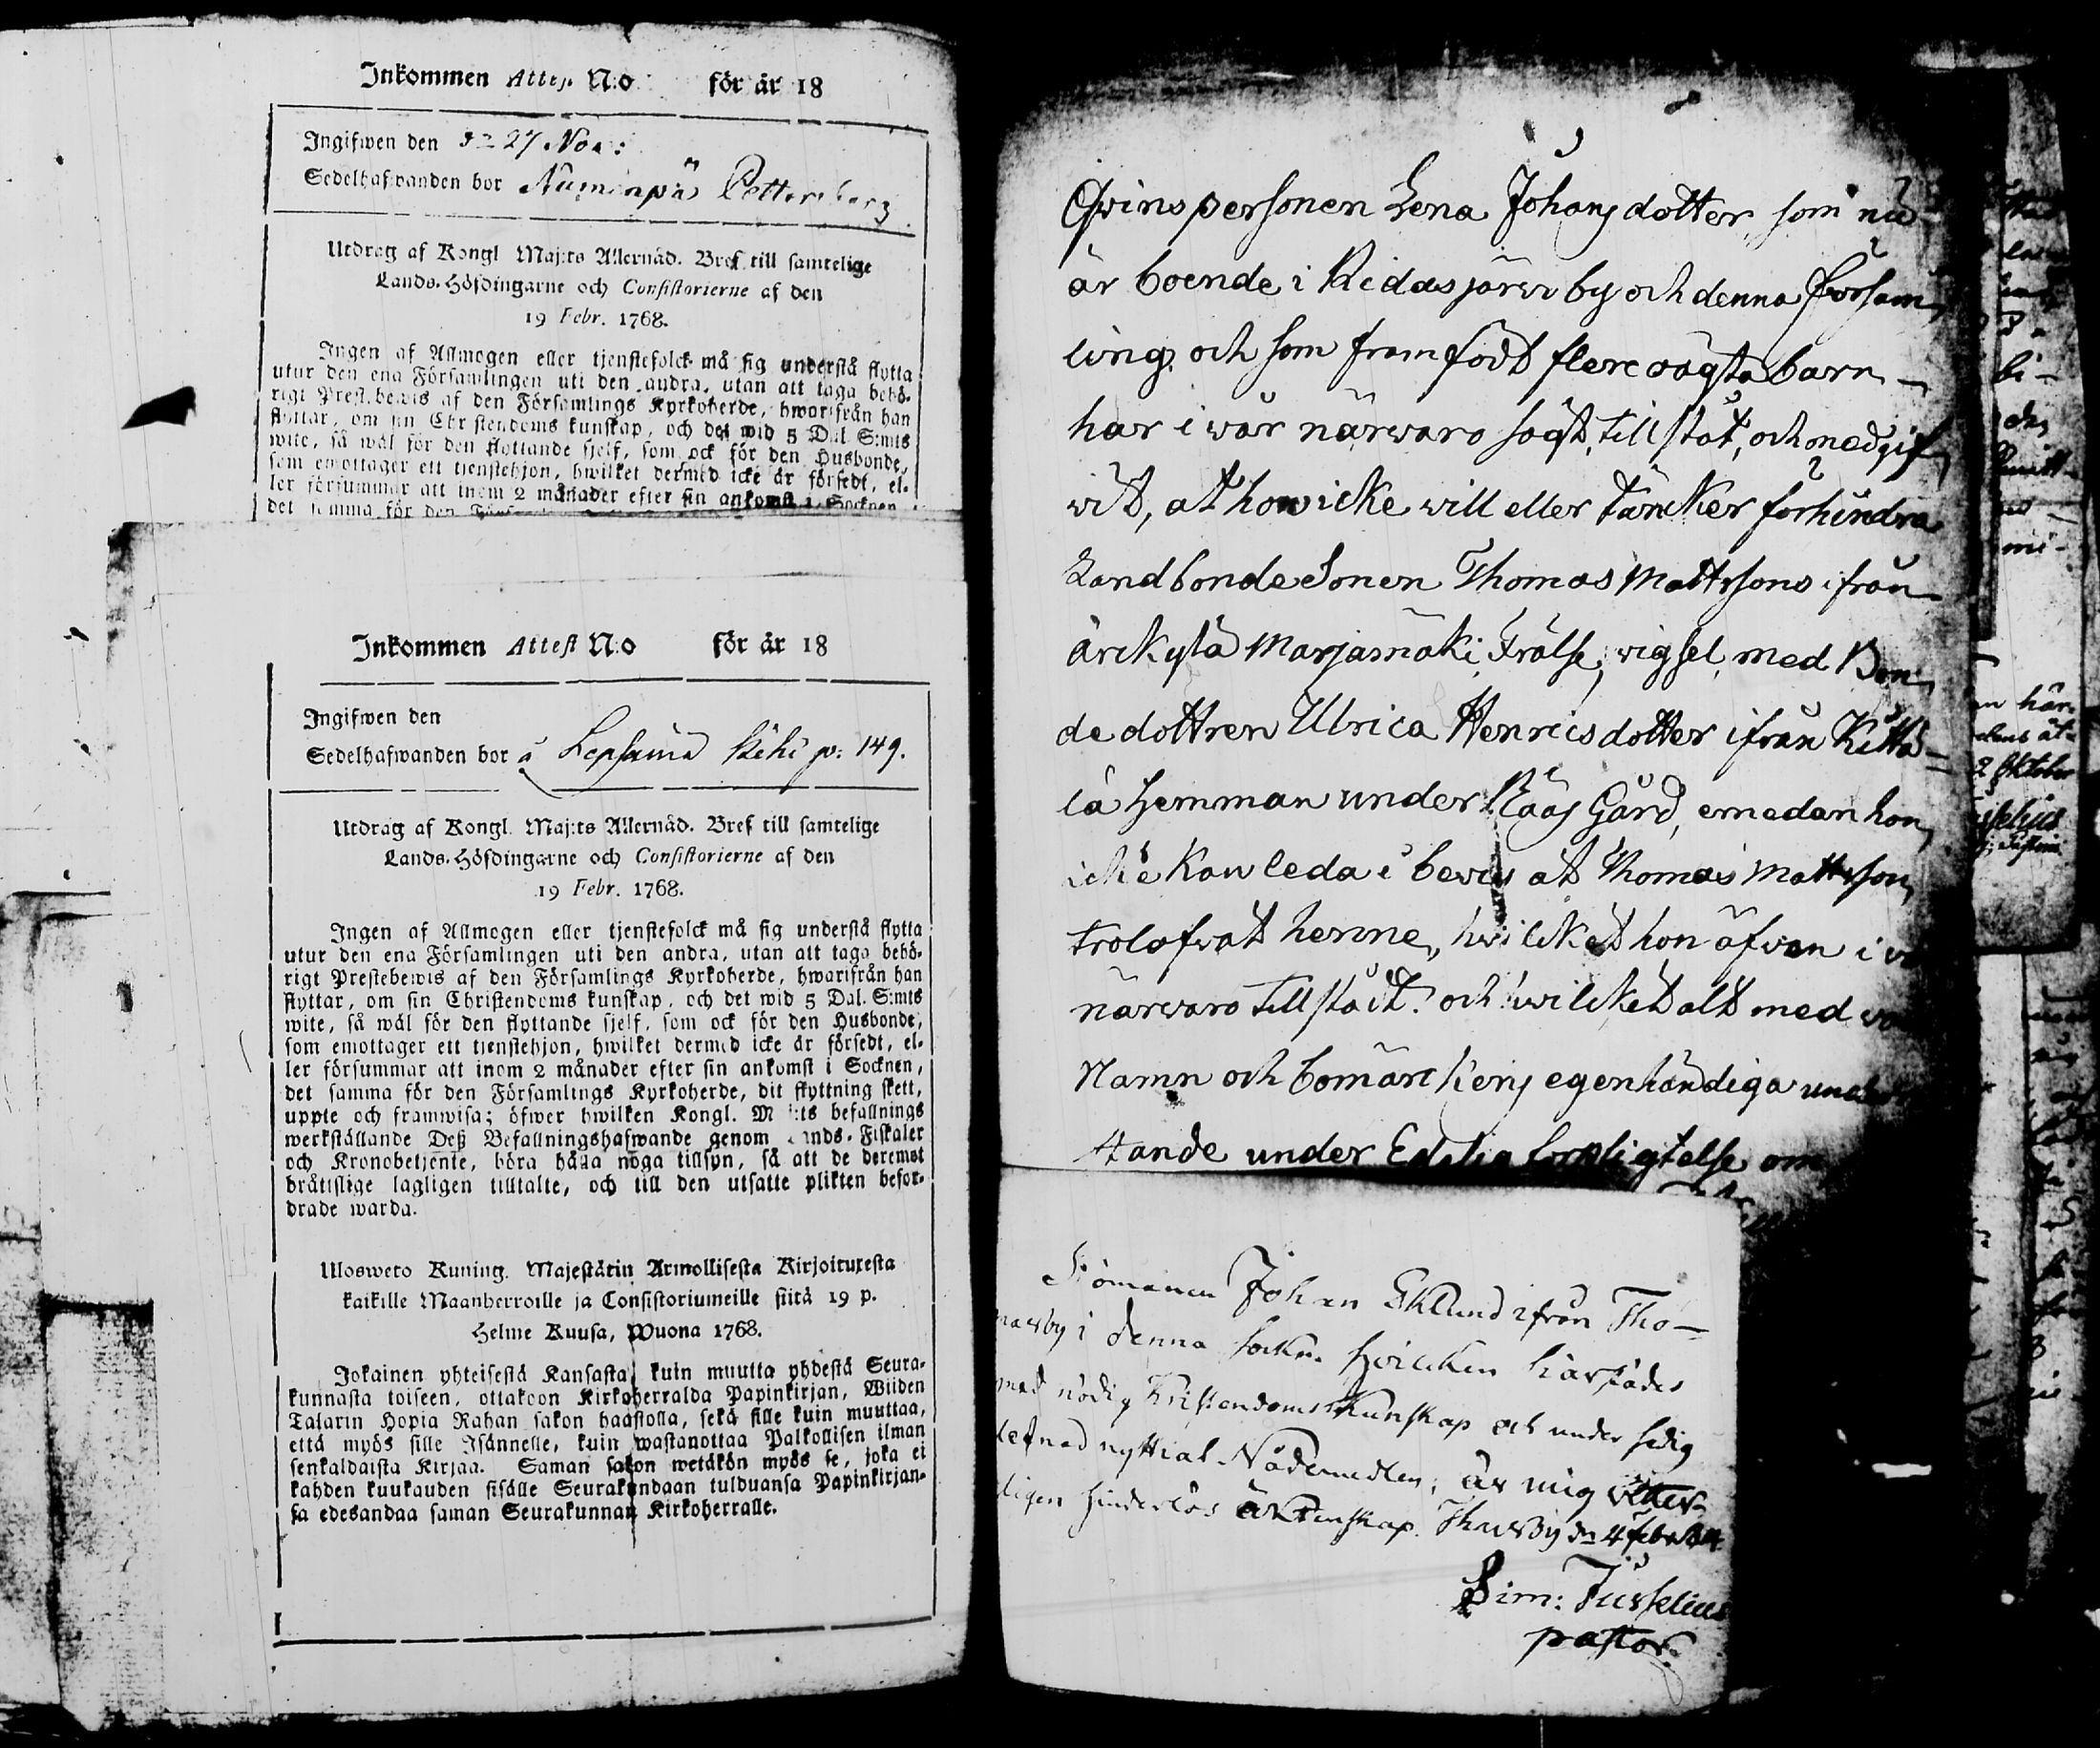 Inkommen Attest N:o för år 18
Ingifwen den 27 Nov:
Sedelhafwanden bor Numenpä Pettersberg
Utdrag af Kongl Maj:ts Allernåd. Bref till samtelige
Lands-Höfdingarne och Consistorierne af den
19 Febr. 1768.
Ingen af Allmogen eller tjenstefolck må sig understå flytta
utur den ena Församlingen uti den andra, utan att taga behö-
rigt Prestbewis af den Församlings Kyrkoherde, hwarifrån han
flyttar, om sin Christendoms kunskap, och det wid 5 Dal. S:mts
wite, så wäl för den flyttande sjelf, som ock för den Husbonde,
som emottager ett tjenstehjon, hwilket dermed icke är försedt, el-
ler försummar att inom 2 månader efter sin ankomst i Socknen
det samma för den
Inkommen Attest N:o för år 18
Ingifwen den
Sedelhafwanden bor å Lepsämä Kihi p: 149.
Utdrag af Kongl. Maj:ts Allernåd. Bref till samtelige
Lands-Höfdingarne och Consistorierne af den
19 Febr. 1768.
Ingen af Allmogen eller tjenstefolck må sig understå flytta
utur den ena Församlingen uti den andra, utan att taga behö-
rigt Prestebewis af den Församlings Kyrkoherde, hwarifrån han
flyttar, om sin Christendoms kunskap, och det wid 5 Dal. S:mts
wite, så wäl för den flyttande sjelf, som ock för den Husbonde,
som emottager ett tjenstehjon, hwilket dermed icke är försedt, el-
ler försummar att inom 2 månader efter sin ankomst i Socknen,
det samma för den Församlings Kyrkoherde, dit flyttning skett,
uppte och framwisa; öfwer hwilken Kongl. Maj:ts befallnings
werkställande Deß Befallningshafwande genom Lands-Fiskaler
och Kronobetjente, böra hålla noga tillsyn, så att de deremot
bråttslige lagligen tilltalte, och till den utsatte plikten befor-
drade warda.
Ulosweto Kuning. Majestätin Armollisesta Kirjoituxesta
kaikille Maanherroille ja Consistoriumeille siitä 19 p.
Helme Kuusa, Wuona 1768.
Jokainen yhteisestä Kansasta, kuin muutta yhdestä Seura-
kunnasta toiseen, ottakoon Kirkoherralda Papinkirjan, Wiiden
Talarin Hopia Rahan sakon haastolla, sekä sille kuin muuttaa,
että myös sille Isännelle, kuin wastanottaa Palkollisen ilman
senkaldaista Kirjaa. Saman sakon wetäkön myös se, joka ei
kahden kuukauden sisälle Seurakundaan tulduansa Papinkirjan-
sa edesandaa saman Seurakunnan Kirkoherralle.
Qwinspersonen Lena Johansdotter, som nu
är boende i Ridasjärwi by och denna Försam,
ling, och som framfödt flere oägta barn –
har i wår närwaro sagt, tillståt, och medgif,
wit, at hon icke will eller täncker förhindra
Landbonde Sonen Thomas Mattssons ifrån
Arckylä Marjamäki Frälse, wigsel med Bon,
dedottren Ulrica Henricsdotter ifrån Kittä=
lä Hemman under Nääs Gård, emedan hon,
icke kan leda i bewis at Thomas Mattsson,
trolofwat henne, hwilcket hon äfwen i w
närwaro tillstådt. och hwilcket alt med wå
Namn och bomärckens egenhändiga under
tande under Edelig förpligtelse om
Sjömannen Johan Eklund ifrån Tho—
masby i denna sockn. hwilcken härstädes
med nödig Kristendoms Kunskap och under sedig
lefnad nyttiat Nådemedlen; är mig witter-
ligen hinderlös till ächtenskap. Thusby dn 4 Febr
Sim: Jusselius
pastor.